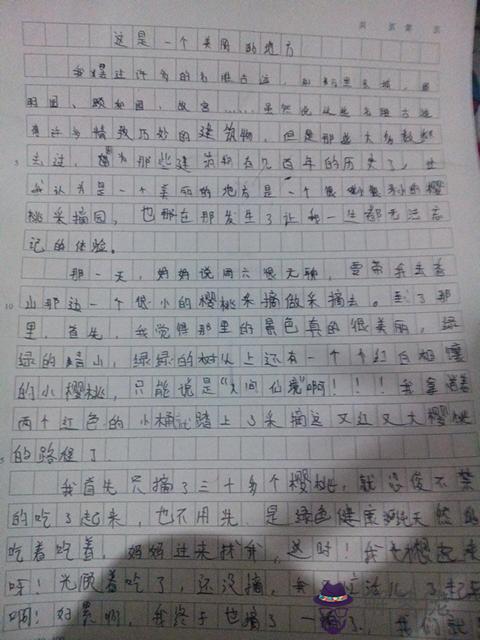 这是一个美丽的地方
我去过许多的名胜古迹，
明园、颐和园、故宫……虽然说这些名胜古迹
有许多精致巧妙的建筑物，但是那些大多数都
去过，因为那些建筑物有几百年的历史了，
我认为是一个美丽的地方是一个很小很小的樱
桃采摘园，也那在那发生了让我一生都无法忘
记的体验。
那一天，妈妈说周六很无聊，要带我去香
山那边一个很小的樱桃采摘做采摘去。到了那
里，首先，我觉得那里的景色真的很美丽，绿
绿的山，绿绿的树从上还有一个个红白相
的小樱桃，只能说是“人间仙境”啊！！！我拿着
两个红色的小桶踏上了采摘这又红又大樱桃
的路程了
我首先只摘了三十多个樱桃，就忍俊不禁
的吃了起来，也不用洗，是绿色健康纯天然
吃着吃着，妈妈过来找我，这时！我
呀！光顾着吃了，还没摘，我
啊！好累啊，我终于也摘了一桶了，我们就